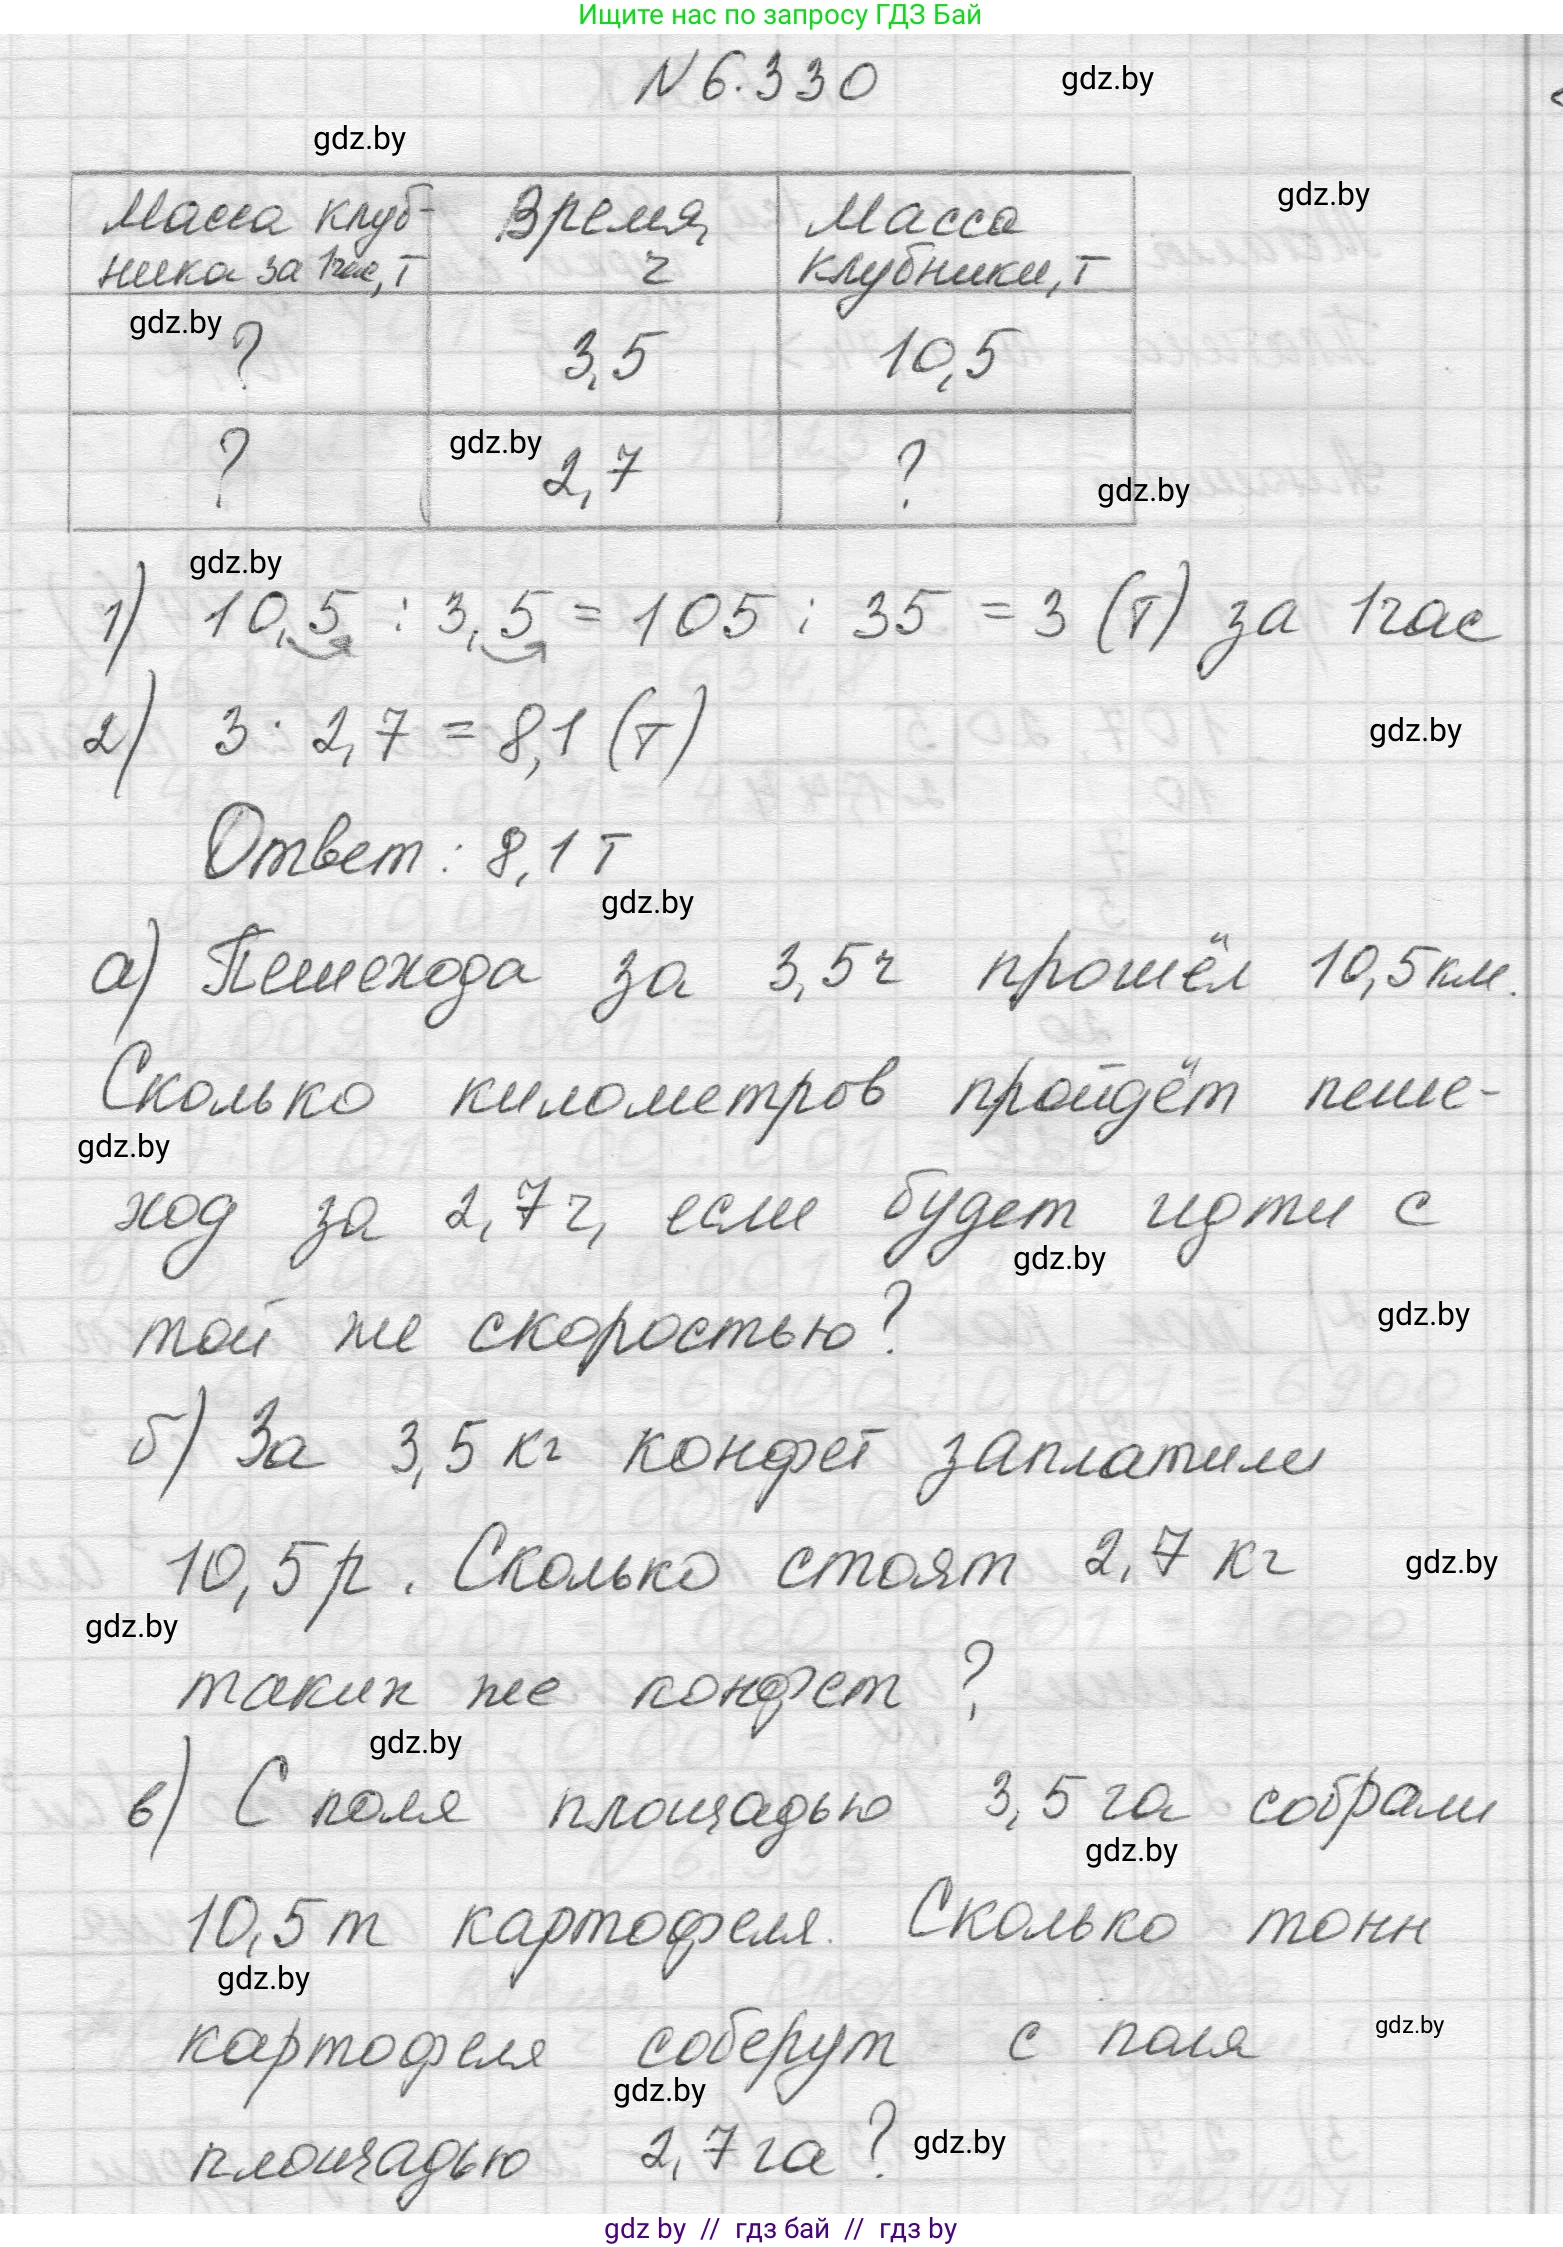 Ищите нас по запросу ГДЗ Бай
N 6.330
gdz.by
gdz.by
gdz.by
Масса клуб- Время, Масса
ника за 1час, т ч клубники, т
gdz.by
? 3,5 10,5
gdz.by
? 2,7 ?
gdz.by
gdz.by
1) 10,5 : 3,5 = 105 : 35 = 3 (т) за 1час
2) 3 · 2,7 = 8,1 (т)
gdz.by
Ответ: 8,1 т
gdz.by
а) Пешехода за 3,5ч прошёл 10,5км.
Сколько километров пройдёт пеше-
gdz.by
ход за 2,7ч, если будет идти с
gdz.by
той же скоростью?
gdz.by
б) За 3,5 кг конфет заплатили
10,5р. Сколько стоят 2,7 кг
gdz.by
gdz.by
таких же конфет ?
gdz.by
в) С поля площадью 3,5 га собрали
gdz.by
10,5 т картофеля. Сколько тонн
gdz.by
картофеля соберут с поля
gdz.by
gdz.by
площадью 2,7 га?
gdz.by
gdz by // гдз бай // гдз by